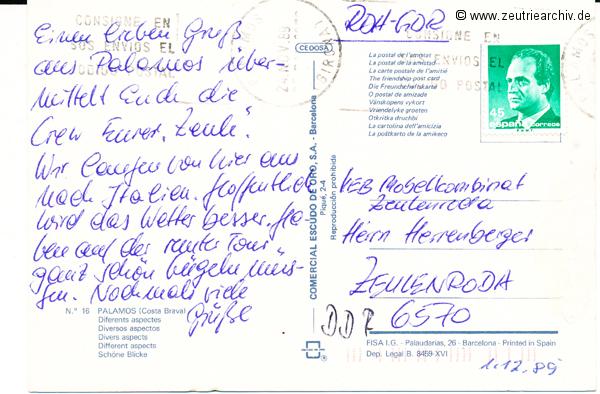 © www.zeutriearchiv.de
CONSIGNE EN
SUS ENVIOS EL
POSTAL
CONSIGNE EN
ENVIOS EL
POSTAL
Einen lieben Gruß
aus Palamos über-
mittelt Euch die
Crew Eurer "Zeule".
Wir laufen von hier aus
nach Italien. Hoffentlich
wird das Wetter besser. Ha-
ben auf der runter Tour
ganz schön bügeln müs-
sen. Nochmals viele
Grüße
N.º 16 PALAMOS (Costa Brava)
Diferents aspectes
Diversos aspectos
Divers aspects
Different aspects
Schöne Blicke
CEDOSA
COMERCIAL ESCUDO DE ORO, S.A. - Barcelona
Piqué, 2-4
Reproducción prohibida
RDA-GDR
La postal de l'amistat
La postal de la amistad
La carte postale de l'amitié
The friendship post card
Die Freundschaftskarte
O postal de amizade
Vänskapens vykort
Vriendelijke groeten
Otkritka druchbi
La cartolina dell'amicizia
La postkarto de la amikeco
45
españa correos
VEB Möbelkombinat
Zeulenroda
Herrn Herrenberger
ZEULENRODA
DDR 6570
FISA I.G. - Palaudarias, 26 - Barcelona - Printed in Spain
Dep. Legal B. 8459-XVI
1.12.89